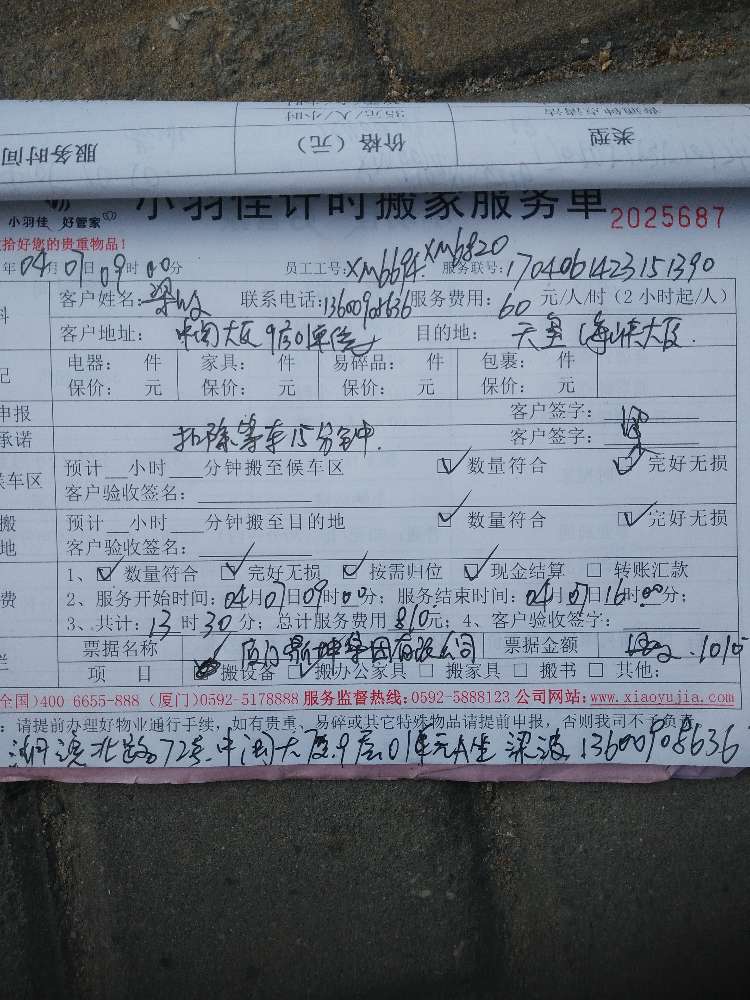 普通钟点清洁 35元/人/小时
类型 价格（元） 服务时间
小羽佳 好管家
小羽佳计时搬家服务单 2025687
拾好您的贵重物品!
年04月07日09时00分 员工工号:XM6694 XM6820 服务联号:1704061423151390
客户姓名: 联系电话:13600908636 服务费用:60元/人/时（2小时起/人）
客户地址:中闽大厦9层01单位 目的地:
电器: 件 家具: 件 易碎品: 件 包裹: 件
保价: 元 保价: 元 保价: 元 保价: 元
申报 客户签字:
承诺 扣除等车15分钟. 客户签字:
候车区 预计__小时__分钟搬至候车区 ☑数量符合 ☑完好无损
客户验收签名:
搬 预计__小时__分钟搬至目的地 ☑数量符合 ☑完好无损
地 客户验收签名:
1、☑数量符合 ☑完好无损 ☑按需归位 ☑现金结算 □转账汇款
费 2、服务开始时间:04月07日09时00分; 服务结束时间:04月07日16时00分;
3、共计:13时30分; 总计服务费用810元; 4、客户验收签字:
票据名称 集团有限公司 票据金额 1010
项 目 搬设备 ☑搬办公家具 □搬家具 □搬书 □其他:
全国)400 6655-888 (厦门)0592-5178888 服务监督热线:0592-5888123 公司网站:www.xiaoyujia.com
:请提前办理好物业通行手续，如有贵重、易碎或其它特殊物品请提前申报，否则我司不予负责。
湖滨北路72号中闽大厦9层01单元A坐 梁波 13600908636